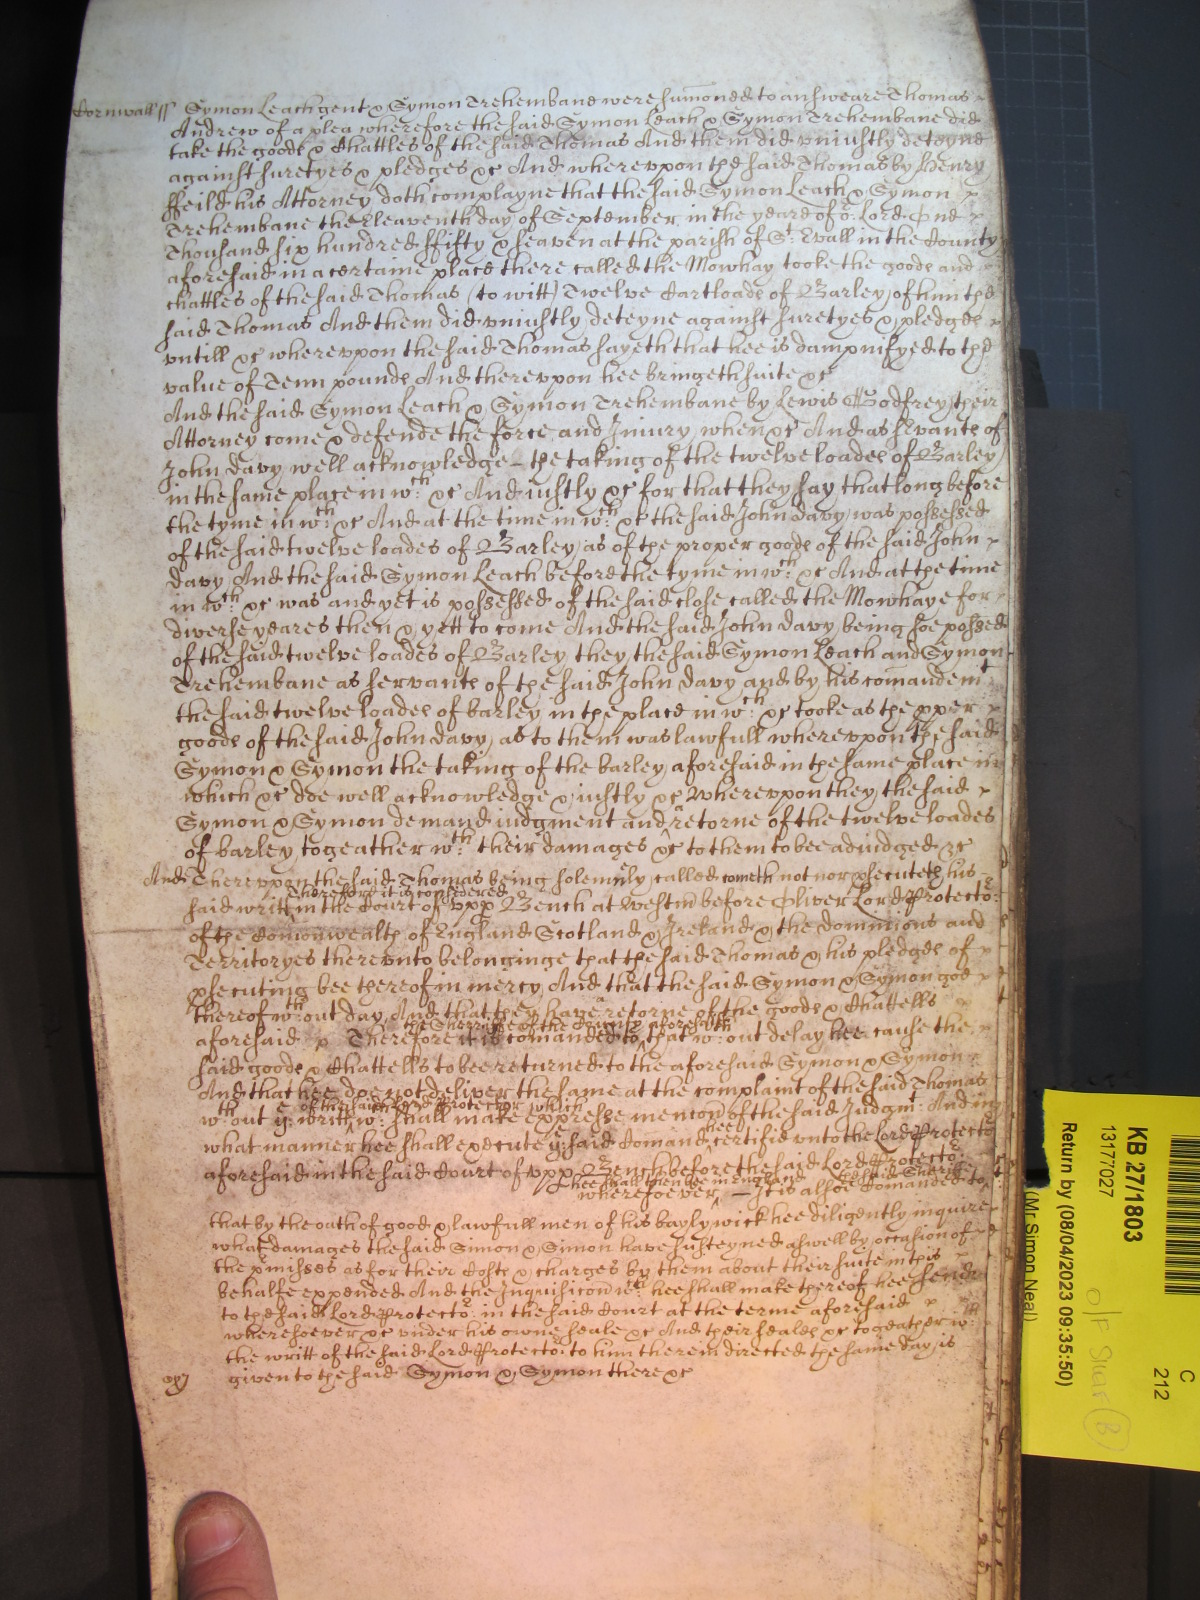 Cornwall ss Symon Leach gent & Symon Trehembane were sumoned to answeare Thomas
Andrew of a plea wherefore the said Symon Leach & Symon Trehembane did
take the goods & Chattles of the said Thomas And them did uniustly deteyne
against suretyes & pledges &c And whereupon the said Thomas by Henry
ffeild his Attorney doth complayne that the said Symon Leach & Symon
Trehembane the Eleaventh day of September in the yeare of or Lord One
Thousand six hundred ffifty & seaven at the parish of St Evall in the County
aforesaid in a certaine place there called the Mowhay tooke the goods and
chattles of the said Thomas (to witt) Twelve Cartloads of Barley of him the
said Thomas And them did uniustly deteyne against suretyes & pledges
untill &c whereupon the said Thomas sayeth that hee is dampnifyed to the
value of Tenn pounds And thereupon hee bringeth suite &c
And the said Symon Leach & Symon Trehembane by Lewis Godfrey their
Attorney come & defende the force and Iniury when &c And as servants of
John Davy well acknowledge the taking of the twelve loades of Barley
in the same place in wch &c And iustly &c for that they say that long before
the tyme in wch &c And at the time in wch &c the said John Davy was possessed
of the said twelve loades of Barley as of the proper goods of the said John
Davy And the said Symon Leach before the tyme in wch &c And at the time
in wch &c was and yet is possessed of the said close called the Mowhaye for
diverse yeares then & yett to come And the said John Davy being soe possed
of the said twelve loades of Barley they the said Symon Leach and Symon
Trehembane as servants of the said John Davy and by his comandemt
the said twelve loades of barley in the place in wch &c tooke as the pper
goods of the said John Davy as to them was lawfull whereupon the said
Symon & Symon the taking of the barley aforesaid in the same place in
which &c doe well acknowledge & iustly &c Whereupon they the said
Symon & Symon demand iudgment and a retorne of the twelve loades
of barley togeather wth their damages &c to them to bee adiudged &c
And Thereupon the said Thomas being solemnly called cometh not nor psecuteth his
Therefore it is considered
said writt in the Court of upp Bench at Westm before Oliver Lord Protector
of the Comonwealth of England Scotland & Ireland & the dominions and
Territoryes thereunto belonginge that the said Thomas & his pledges of
psecuting bee thereof in mercy And that the said Symon & Symon goe
thereof wthout day And that they have a retorne of the goods & Chattells
the Sherriffe of the County aforesaid
aforesaid &c Therefore it is comanded to that wthout delay hee cause the
said goods & Chattells to bee returned to the aforesaid Symon & Symon
And that hee doe not deliver the same at the complaint of the said Thomas
of the said Lord Protector which
wthout ye writt shall make expresse mencon of the said Judgmt And in
what manner hee shall execute ye said Comand hee certifie unto the Lord Protector
aforesaid in the said Court of upp Bench before the said Lord Protector
hee shall then bee in England the said Sheriffe
wheresoever It is alsoe Comanded to
that by the oath of good & lawfull men of his baylywick hee diligently inquire
what damages the said Simon & Simon have susteyned aswell by occasion of
the pmisses as for their Costs & charges by them about their suite in this
behalfe expended And the Inquisicon wch hee shall make thereof hee send
to the said Lord Protector in the said Court at the terme aforesaid
wheresoever &c under his owne seale &c And their seales &c togeather wth
the writt of the said Lord Protector to him therein directed the same day is
given to the said Symon & Symon there &c
KB 27/1803
13177027
Return by (08/04/2023 09:35:50)
(Mr Simon Neal)
C
212